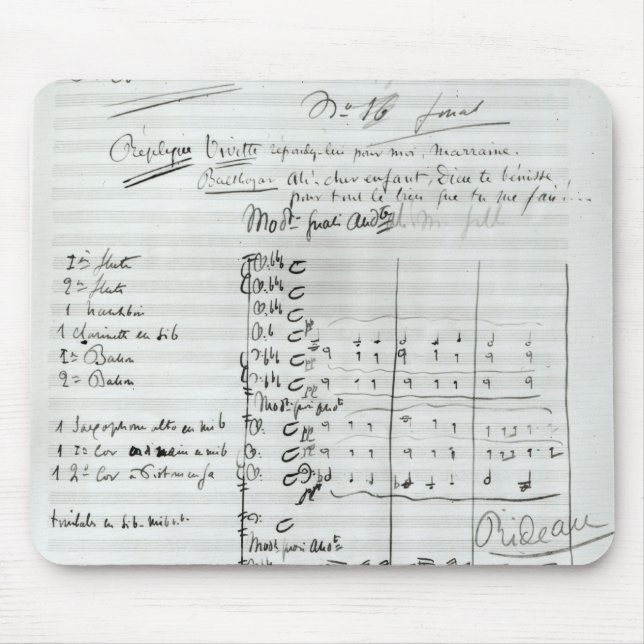 No 16 final
Réplique Vivette répondez-lui pour moi, marraine.
Balthazar Ah! cher enfant, Dieu te bénisse
pour tout le bien que tu me fais!...
Modto quasi Andte
1re flute
2e flute
1 hautbois
1 clarinette en sib
1er Basson
2e Basson
Modto quasi Andte
1 Saxophone alto en mib
1 1er Cor en mib
1 2e Cor à Pistons en fa
timbales en sib-mib
Rideau
Modto quasi Andte